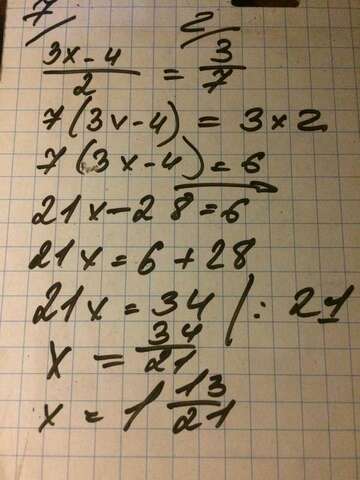 7/ 2/
(3x-4)/2 = 3/7
7(3x-4) = 3×2
7(3x-4) = 6
21x-28=6
21x=6+28
21x=34 /:21
x = 34/21
x = 1 13/21